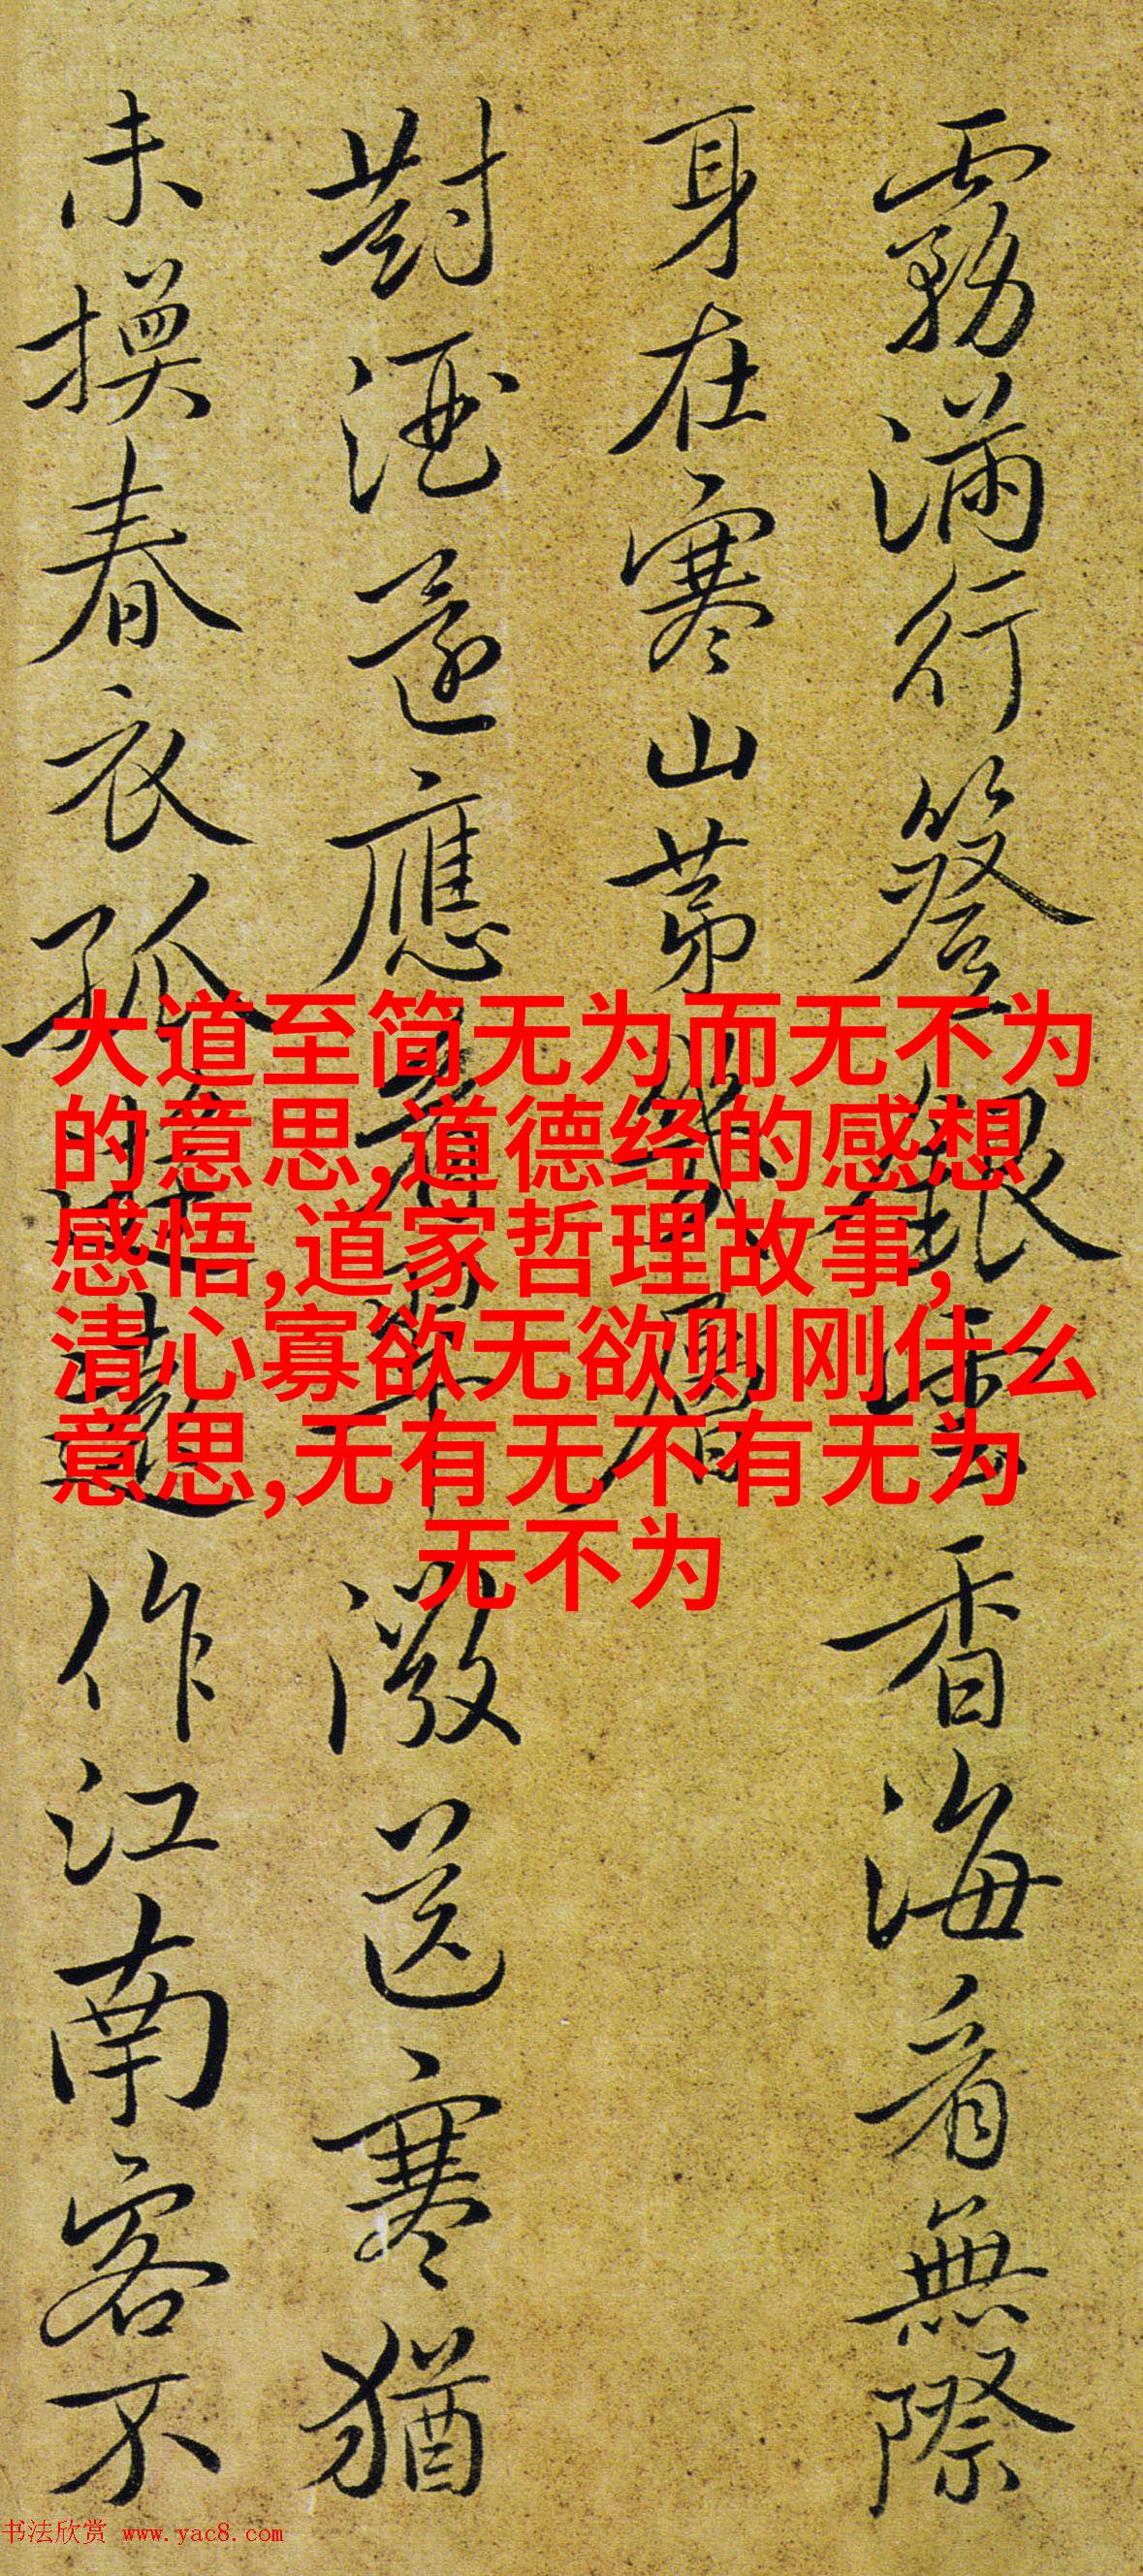 霧滿行簦銀香海看無際
身在寒山第層
對酒還應送寒猶
未換春衣孤作江南客不
大道至简无为而无不为
的意思,道德经的感想
感悟,道家哲理故事,
清心寡欲无欲则刚什么
意思,无有无不有无为
无不为
书法欣赏 www.yac8.com